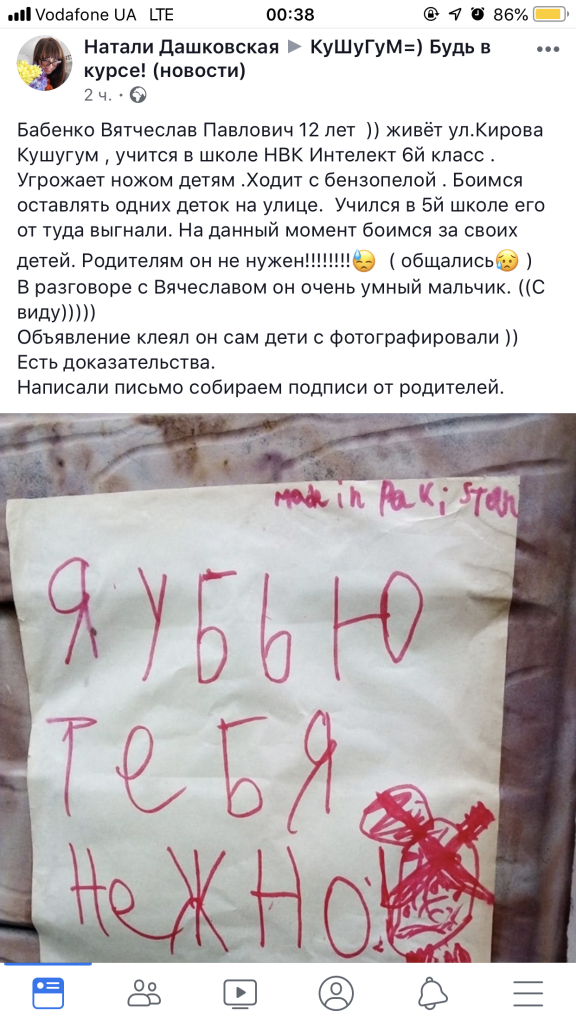 Vodafone UA LTE 00:38 86%
Натали Дашковская ▶ КуШуГуМ=) Будь в
курсе! (новости)
2 ч. ·
Бабенко Вятчеслав Павлович 12 лет )) живёт ул.Кирова
Кушугум , учится в школе НВК Интелект 6й класс .
Угрожает ножом детям .Ходит с бензопелой . Боимся
оставлять одних деток на улице. Учился в 5й школе его
от туда выгнали. На данный момент боимся за своих
детей. Родителям он не нужен!!!!!!!!😓 ( общались😥 )
В разговоре с Вячеславом он очень умный мальчик. ((С
виду)))))
Объявление клеял он сам дети с фотографировали ))
Есть доказательства.
Написали письмо собираем подписи от родителей.
made in Pak; stan
Я УБЬЮ
ТеБЯ
НеЖНО!